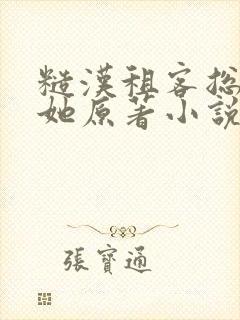 糙漢租客總
她原著小說
張寶通